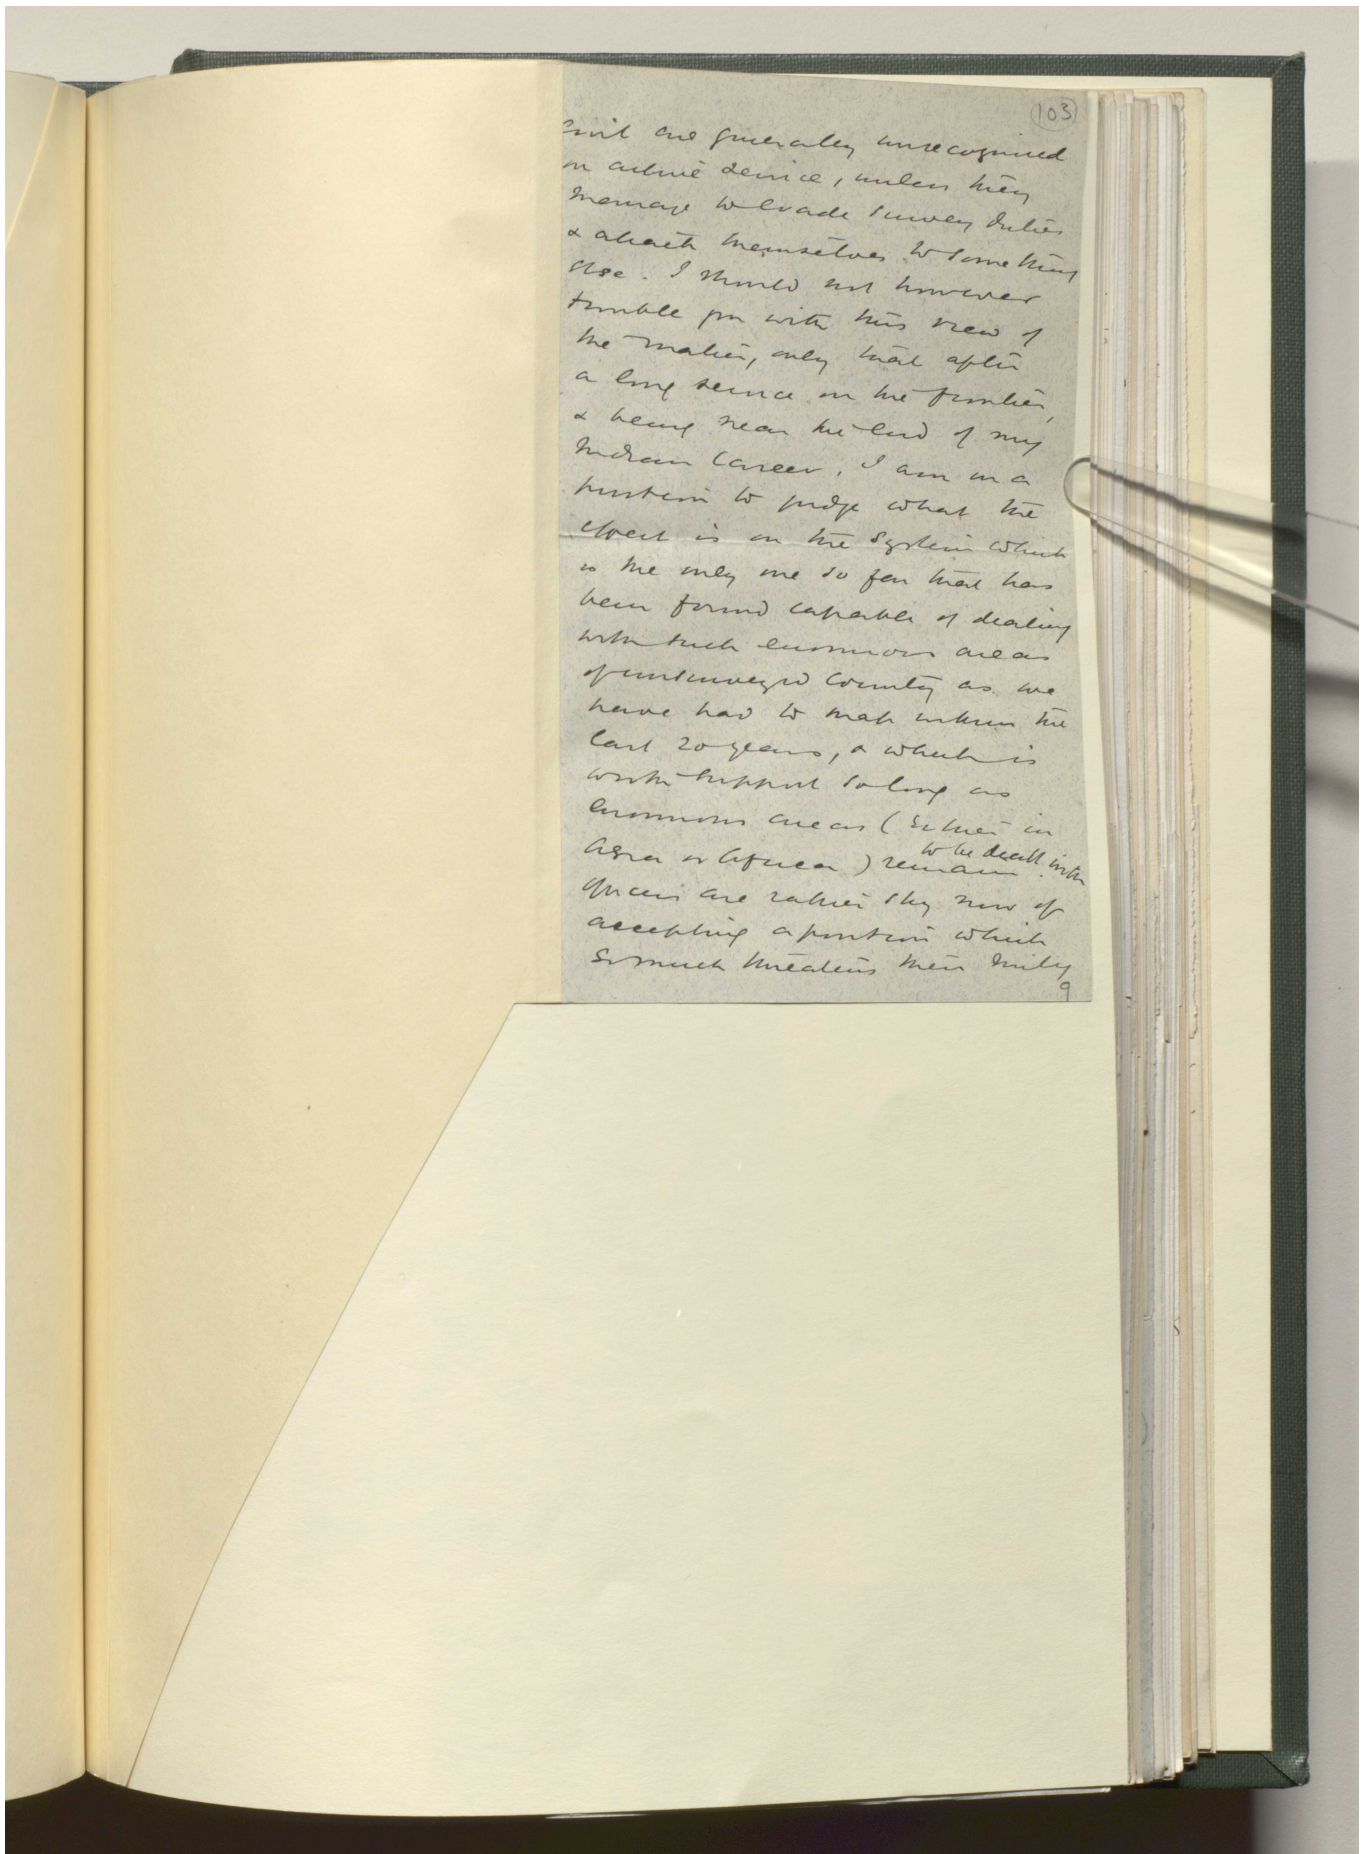 103
Civil are generally unrecognised
on active service, unless they
manage to evade Survey duties
& attach themselves to something
else. I should not however
trouble you with this view of
the matter, only that after
a long service on the frontier,
& being near the end of my
Indian career, I am in a
position to judge what the
effect is on the system which
is the only one so far that has
been found capable of dealing
with such enormous areas
of unsurveyed country as we
have had to map within the
last 20 years, & which is
worth support so long as
enormous areas (either in
Asia or Africa) remain to be dealt with.
Officers are rather shy now of
accepting a position which
so much threatens their mily
9